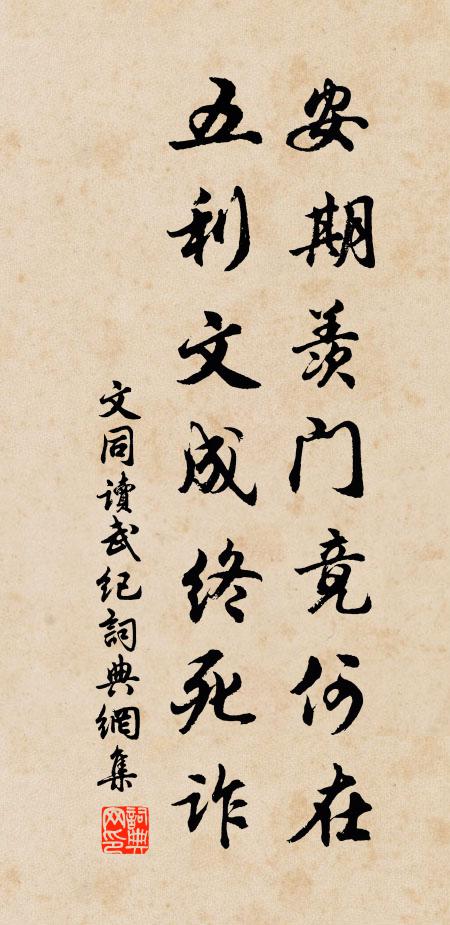 安期羡门竟何在
五利文成终死诈
文同讀武纪詞典網集
詞典网印